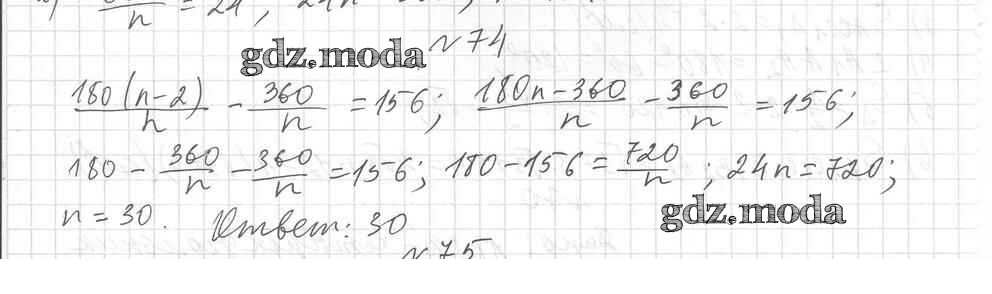 n = 24; 24n
№74
gdz.moda
180(n-2)/n - 360/n = 156; 180n-360/n - 360/n = 156;
180 - 360/n - 360/n = 156; 180-156 = 720/n; 24n = 720;
n = 30. Ответ: 30
gdz.moda
№75